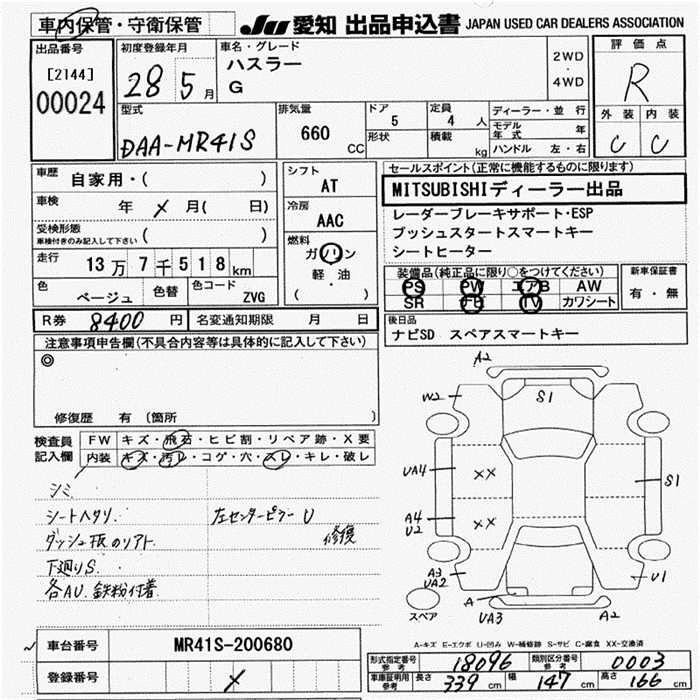 車内保管・守衛保管
JU 愛知 出品申込書 JAPAN USED CAR DEALERS ASSOCIATION
出品番号
[2144]
00024
初度登録年月
28 5月
車名・グレード
ハスラー
G
2WD
・
4WD
評価点
R
外装 内装
C C
型式
DAA-MR41S
排気量
660
CC
ドア
5
形状
定員
4 人
積載
kg
ディーラー・並行
モデル年式 年
ハンドル 左・右
車歴
自家用・( )
車検
年 メ 月( 日)
受検形態
車検付きのみ記入して下さい ( )
走行
13万7千518km
色
ベージュ
色替
色コード
ZVG
シフト
AT
冷房
AAC
燃料
ガソリン
軽・油
( )
セールスポイント(正常に機能するものに限ります)
MITSUBISHIディーラー出品
レーダーブレーキサポート・ESP
プッシュスタートスマートキー
シートヒーター
装備品(純正品に限り○をつけてください)
PS PW エアB AW
SR TV カワシート
新車保証書
有・無
R券 8400 円
名変通知期限 月 日
後日品
ナビSD スペアスマートキー
注意事項申告欄(不具合内容等は具体的に記入して下さい)
◎
修復歴 有 (箇所 )
検査員
記入欄
FW キズ・飛石・ヒビ割・リペア跡・X要
内装 キズ・汚レ・コゲ・穴・スレ・キレ・破レ
シミ
シートヘタリ. 左センターピラー U
修復
ダッシュ板のリアト.
下廻りS.
各AU. 鉄粉付着
A2
W2
S1
UA4
XX
S1
A4
U2
XX
A3
UA2
U1
A
UA3
A2
スペア
A-キズ E-エクボ U-凹み W-補修跡 S-サビ C-腐食 XX-交換済
車台番号
MR41S-200680
登録番号
メ
型式指定番号
参考
18096
類別区分番号
参考
0003
車庫証明用
参考
長さ 339 cm 幅 147 cm 高さ 166 cm